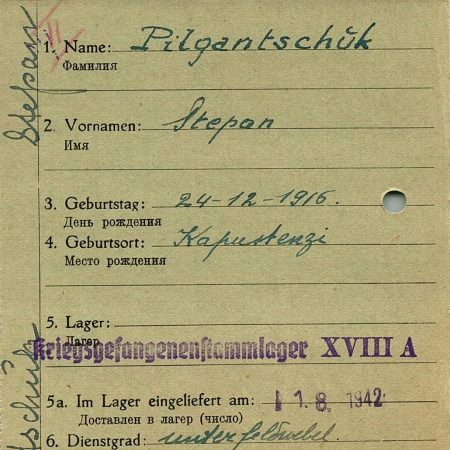 VII
1. Name: Pilgantschŭk
Фамилия
2. Vornamen: Stepan
Имя
3. Geburtstag: 24-12-1916.
День рождения
4. Geburtsort: Kapustenzi
Место рождения
5. Lager:
Лагер
Kriegsgefangenenstammlager XVIII A
5a. Im Lager eingeliefert am: 1. 8. 1942
Доставлен в лагер (число)
6. Dienstgrad: unterfeldwebel.
Stepan
tschŭk